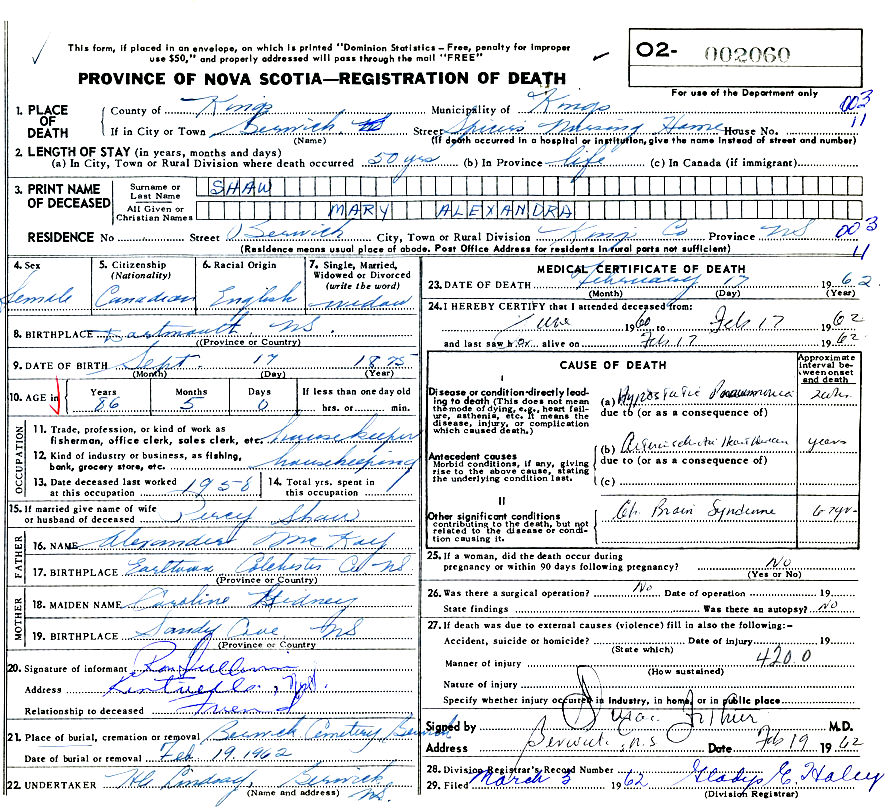 This form, if placed in an envelope, on which is printed "Dominion Statistics – Free, penalty for improper
use $50," and properly addressed will pass through the mail "FREE"
O2- 002060
PROVINCE OF NOVA SCOTIA—REGISTRATION OF DEATH
For use of the Department only
003
11
1. PLACE OF DEATH County of Kings Municipality of Kings
If in City or Town Berwick Street Spicer's Nursing Home House No.
(Name) (If death occurred in a hospital or institution, give the name instead of street and number)
2. LENGTH OF STAY (in years, months and days)
(a) In City, Town or Rural Division where death occurred 50 yrs (b) In Province life (c) In Canada (if immigrant)
3. PRINT NAME OF DECEASED
Surname or Last Name SHAW
All Given or Christian Names MARY ALEXANDRA
RESIDENCE No Street Berwick City, Town or Rural Division Kings Co Province NS 003
(Residence means usual place of abode. Post Office Address for residents in rural parts not sufficient) 11
4. Sex Female
5. Citizenship (Nationality) Canadian
6. Racial Origin English
7. Single, Married, Widowed or Divorced (write the word) widow
8. BIRTHPLACE Dartmouth NS.
(Province or Country)
9. DATE OF BIRTH Sept. 17 1875
(Month) (Day) (Year)
10. AGE in Years 86 Months 5 Days 0 If less than one day old hrs. or min.
OCCUPATION
11. Trade, profession, or kind of work as fisherman, office clerk, sales clerk, etc. housekeeper
12. Kind of industry or business, as fishing, bank, grocery store, etc. housekeeping
13. Date deceased last worked at this occupation 1958
14. Total yrs. spent in this occupation
15. If married give name of wife or husband of deceased Percy Shaw
FATHER
16. NAME Alexander McKay
17. BIRTHPLACE Earltown Colchester Co NS
(Province or Country)
MOTHER
18. MAIDEN NAME Caroline
19. BIRTHPLACE Sandy Cove NS
(Province or Country
20. Signature of informant
Address Kentville,
Relationship to deceased friend
21. Place of burial, cremation or removal Berwick Cemetery Berwick
Date of burial or removal Feb 19, 1962
22. UNDERTAKER Lindsay, Berwick NS.
(Name and address)
MEDICAL CERTIFICATE OF DEATH
23. DATE OF DEATH February 17 1962
(Month) (Day) (Year)
24. I HEREBY CERTIFY that I attended deceased from:
June 1960 to Feb 17 1962
and last saw her alive on Feb 17 1962
CAUSE OF DEATH
Approximate interval between onset and death
I
Disease or condition directly leading to death (This does not mean the mode of dying, e.g., heart failure, asthenia, etc. It means the disease, injury, or complication which caused death.)
(a) Hypostatic Pneumonia
due to (or as a consequence of)
Antecedent causes
Morbid conditions, if any, giving rise to the above cause, stating the underlying condition last.
(b) Arteriosclerotic Heart Disease years
due to (or as a consequence of)
(c)
II
Other significant conditions contributing to the death, but not related to the disease or condition causing it.
Ch. Brain Syndrome
25. If a woman, did the death occur during pregnancy or within 90 days following pregnancy? No
(Yes or No)
26. Was there a surgical operation? No Date of operation 19
State findings Was there an autopsy? No
27. If death was due to external causes (violence) fill in also the following:–
Accident, suicide or homicide? Date of injury 19
(State which)
Manner of injury 420.0
(How sustained)
Nature of injury
Specify whether injury occurred in industry, in home, or in public place
Signed by M.D.
Address Berwick, N.S Date Feb 19 1962
28. Division Registrar's Record Number
29. Filed March 3 1962 Gladys E. Haley
(Division Registrar)